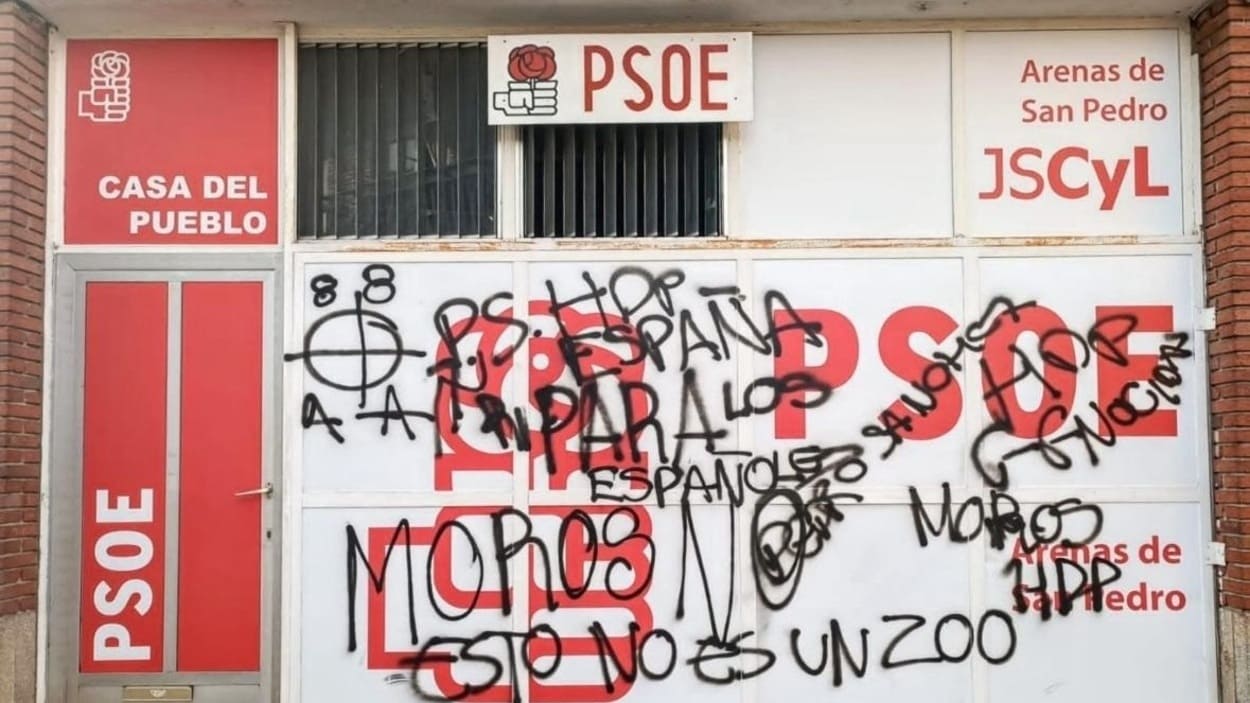 PSOE
Arenas de
San Pedro
JSCyL
CASA DEL
PUEBLO
88
P.S. HDP
ESPAÑA
PARA LOS
ESPAÑOLES
PSOE
HDP
MOROS NO
MOROS
HDP
ESTO NO ES UN ZOO
Arenas de
San Pedro
PSOE